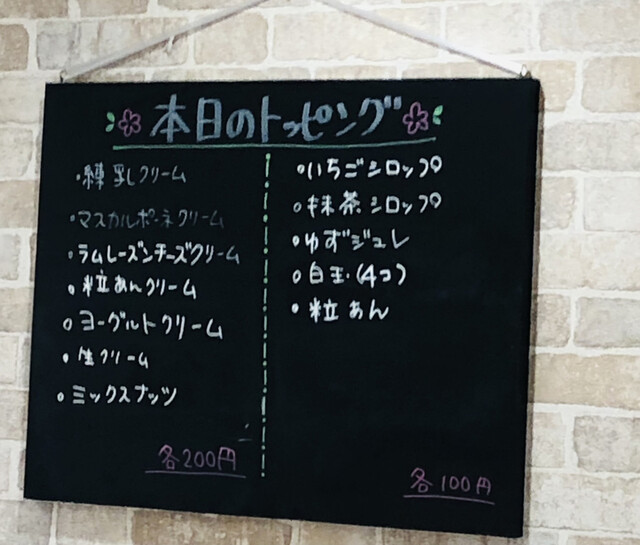 本日のトッピング
・練乳クリーム
・マスカルポーネクリーム
・ラムレーズンチーズクリーム
・粒あんクリーム
・ヨーグルトクリーム
・生クリーム
・ミックスナッツ
各200円
・いちごシロップ
・抹茶シロップ
・ゆずジュレ
・白玉(4コ)
・粒あん
各100円